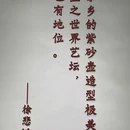 乡的紫砂壶造型极美
之世界艺坛，
有地位。
——徐悲